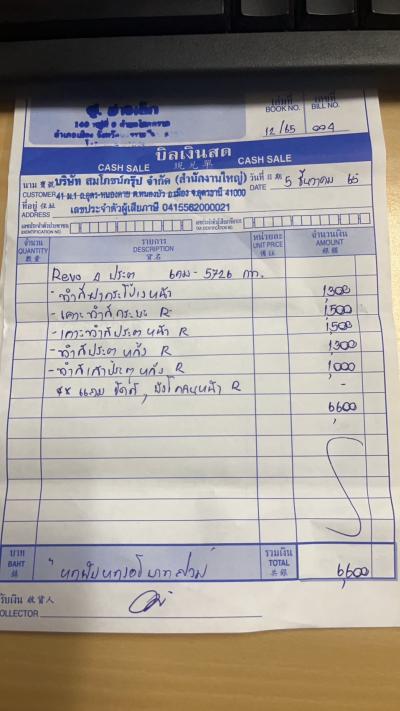 เล่มที่ เลขที่
BOOK NO. BILL NO.
12/65 004
บิลเงินสด
CASH SALE 現兌單 CASH SALE
นาม บริษัท สมโภชน์กรุ๊ป จำกัด (สำนักงานใหญ่) วันที่ 5 ธันวาคม 65
CUSTOMER 41 ม.1 ถ.อุดร-หนองคาย ต.หนองบัว อ.เมือง จ.อุดรธานี 41000 DATE
ที่อยู่
ADDRESS เลขประจำตัวผู้เสียภาษี 0415562000021
จำนวน รายการ หน่วยละ จำนวนเงิน
QUANTITY DESCRIPTION UNIT PRICE AMOUNT
數量 貨名 價銀 銀碼
Revo 4 ประตู 6กม - 5726 กท.
- ทำสีฝากระโปรงหน้า 1,300
- เคาะทำสีกระบะ R 1,500
- เคาะทำสีประตูหน้า R 1,500
- ทำสีประตูหลัง R 1,300
- ทำสีเสาประตูหลัง R 1,000
** แถม ขัดสี, บังโคลนหน้า R -
6,600
บาท รวมเงิน
BAHT TOTAL 6,600
銖 共銀
"หกพันหกร้อยบาทถ้วน"
รับเงิน 收貨人
COLLECTOR